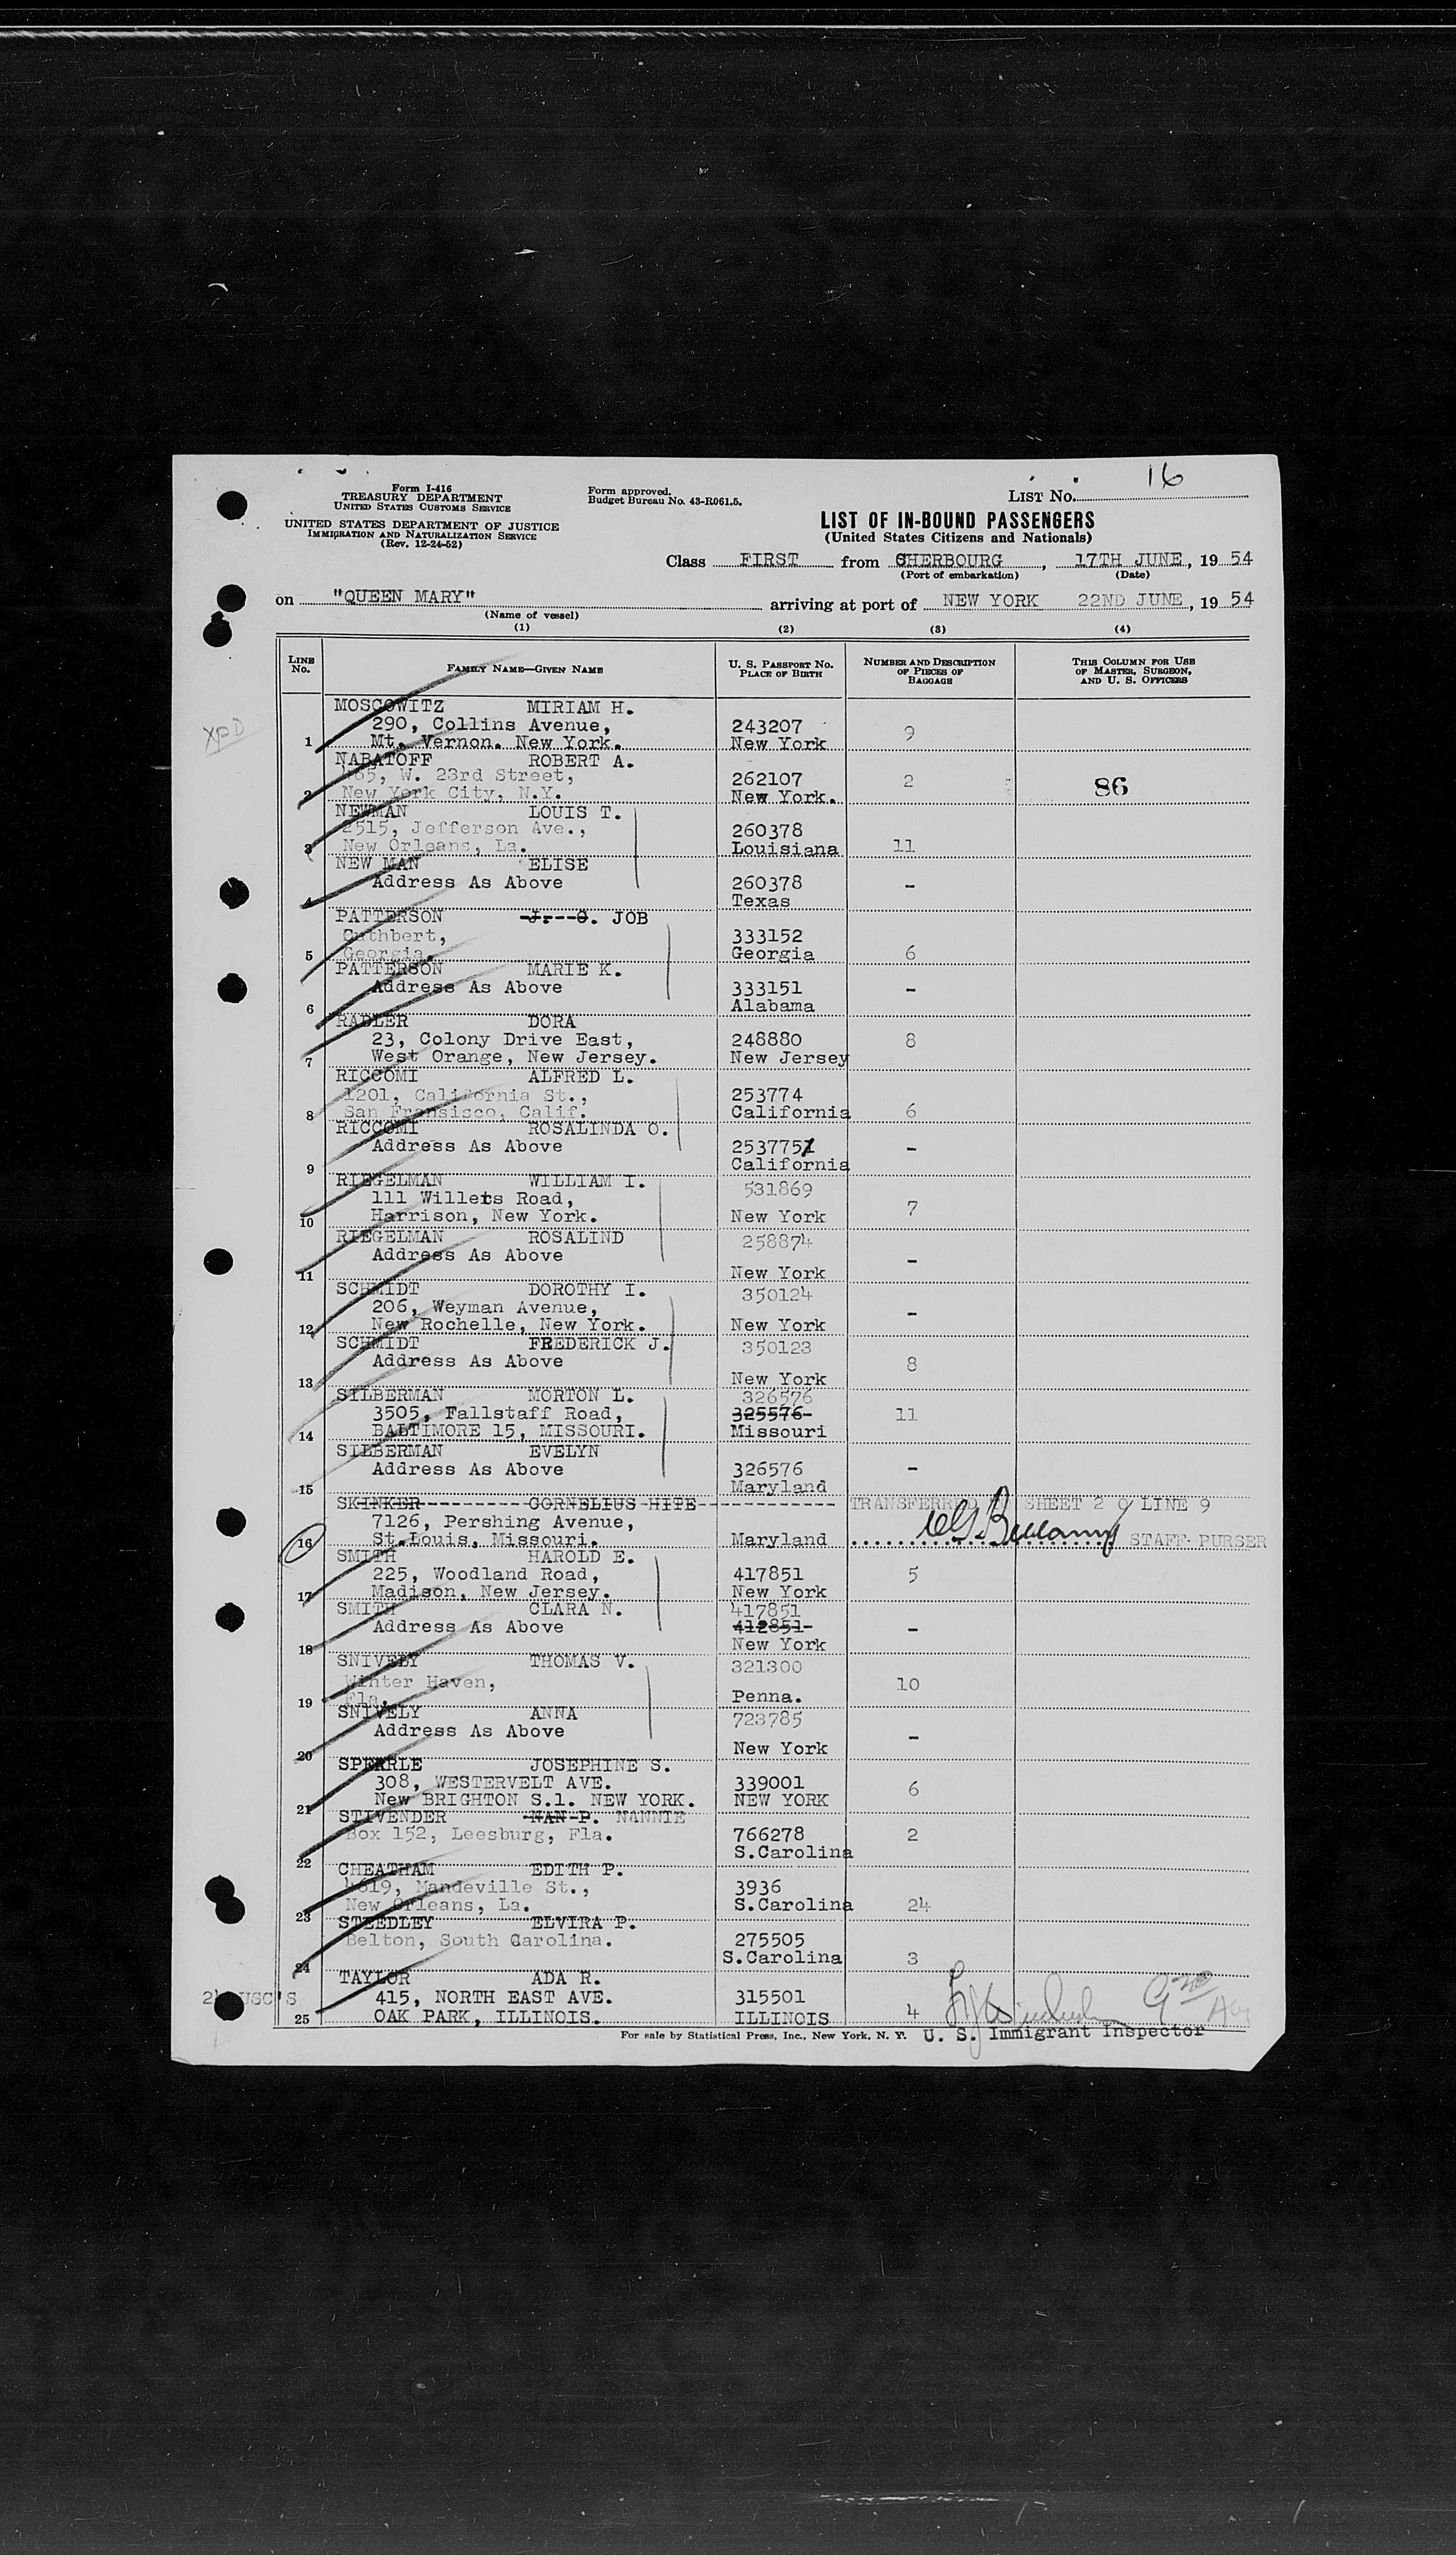 16
Form I-416
TREASURY DEPARTMENT
UNITED STATES CUSTOMS SERVICE
UNITED STATES DEPARTMENT OF JUSTICE
IMMIGRATION AND NATURALIZATION SERVICE
(Rev. 12-24-52)
Form approved.
Budget Bureau No. 43-R061.5.
LIST NO.
LIST OF IN-BOUND PASSENGERS
(United States Citizens and Nationals)
Class FIRST from CHERBOURG, 17TH JUNE, 19 54
(Port of embarkation) (Date)
on "QUEEN MARY" arriving at port of NEW YORK 22ND JUNE, 19 54
(Name of vessel)
(1) (2) (3) (4)
LINE NO.
FAMILY NAME—GIVEN NAME
U. S. PASSPORT NO.
PLACE OF BIRTH
NUMBER AND DESCRIPTION
OF PIECES OF
BAGGAGE
THIS COLUMN FOR USE
OF MASTER, SURGEON,
AND U. S. OFFICERS
XPD
MOSCOWITZ MIRIAM H.
290, Collins Avenue, 243207 9
1 Mt. Vernon. New York. New York
NABATOFF ROBERT A.
465, W. 23rd Street, 262107 2 86
2 New York City, N.Y. New York.
NEWMAN LOUIS T.
2515, Jefferson Ave., 260378
3 New Orleans, La. Louisiana 11
NEW MAN ELISE
Address As Above 260378 -
4 Texas
PATTERSON J. G. JOB
Cuthbert, 333152
5 Georgia. Georgia 6
PATTERSON MARIE K.
Address As Above 333151 -
6 Alabama
RADLER DORA
23, Colony Drive East, 248880 8
7 West Orange, New Jersey. New Jersey
RICCOMI ALFRED L.
1201, California St., 253774
8 San Fransisco, Calif. California 6
RICCOMI ROSALINDA O.
Address As Above 253775 -
9 California
RIEGELMAN WILLIAM I. 531869
111 Willets Road, 7
10 Harrison, New York. New York
RIEGELMAN ROSALIND 258874
Address As Above -
11 New York
SCHMIDT DOROTHY I. 350124
206, Weyman Avenue, -
12 New Rochelle, New York. New York
SCHMIDT FREDERICK J. 350123
Address As Above 8
13 New York
SILBERMAN MORTON L. 326576
3505, Fallstaff Road, 325576- 11
14 BALTIMORE 15, MISSOURI. Missouri
SILBERMAN EVELYN
Address As Above 326576 -
15 Maryland
SKINKER CORNELIUS HITE TRANSFERRED SHEET 20 LINE 9
7126, Pershing Avenue,
16 St.Louis, Missouri. Maryland STAFF PURSER
SMITH HAROLD E.
225, Woodland Road, 417851 5
17 Madison, New Jersey. New York
SMITH CLARA N. 417851
Address As Above 412851- -
18 New York
SNIVELY THOMAS V. 321300
Winter Haven, 10
19 Fla. Penna.
SNIVELY ANNA 723785
Address As Above -
20 New York
SPEARLE JOSEPHINE S.
308, WESTERVELT AVE. 339001 6
21 New BRIGHTON S.l. NEW YORK. NEW YORK
STIVENDER NAN P. NANNIE
Box 152, Leesburg, Fla. 766278 2
22 S.Carolina
CHEATHAM EDITH P.
4619, Mandeville St., 3936
23 New Orleans, La. S.Carolina 24
STEEDLEY ELVIRA P.
Belton, South Carolina. 275505
24 S.Carolina 3
TAYLOR ADA R.
24 USC'S 415, NORTH EAST AVE. 315501
25 OAK PARK, ILLINOIS. ILLINOIS 4
For sale by Statistical Press, Inc., New York, N. Y. U. S. Immigrant Inspector